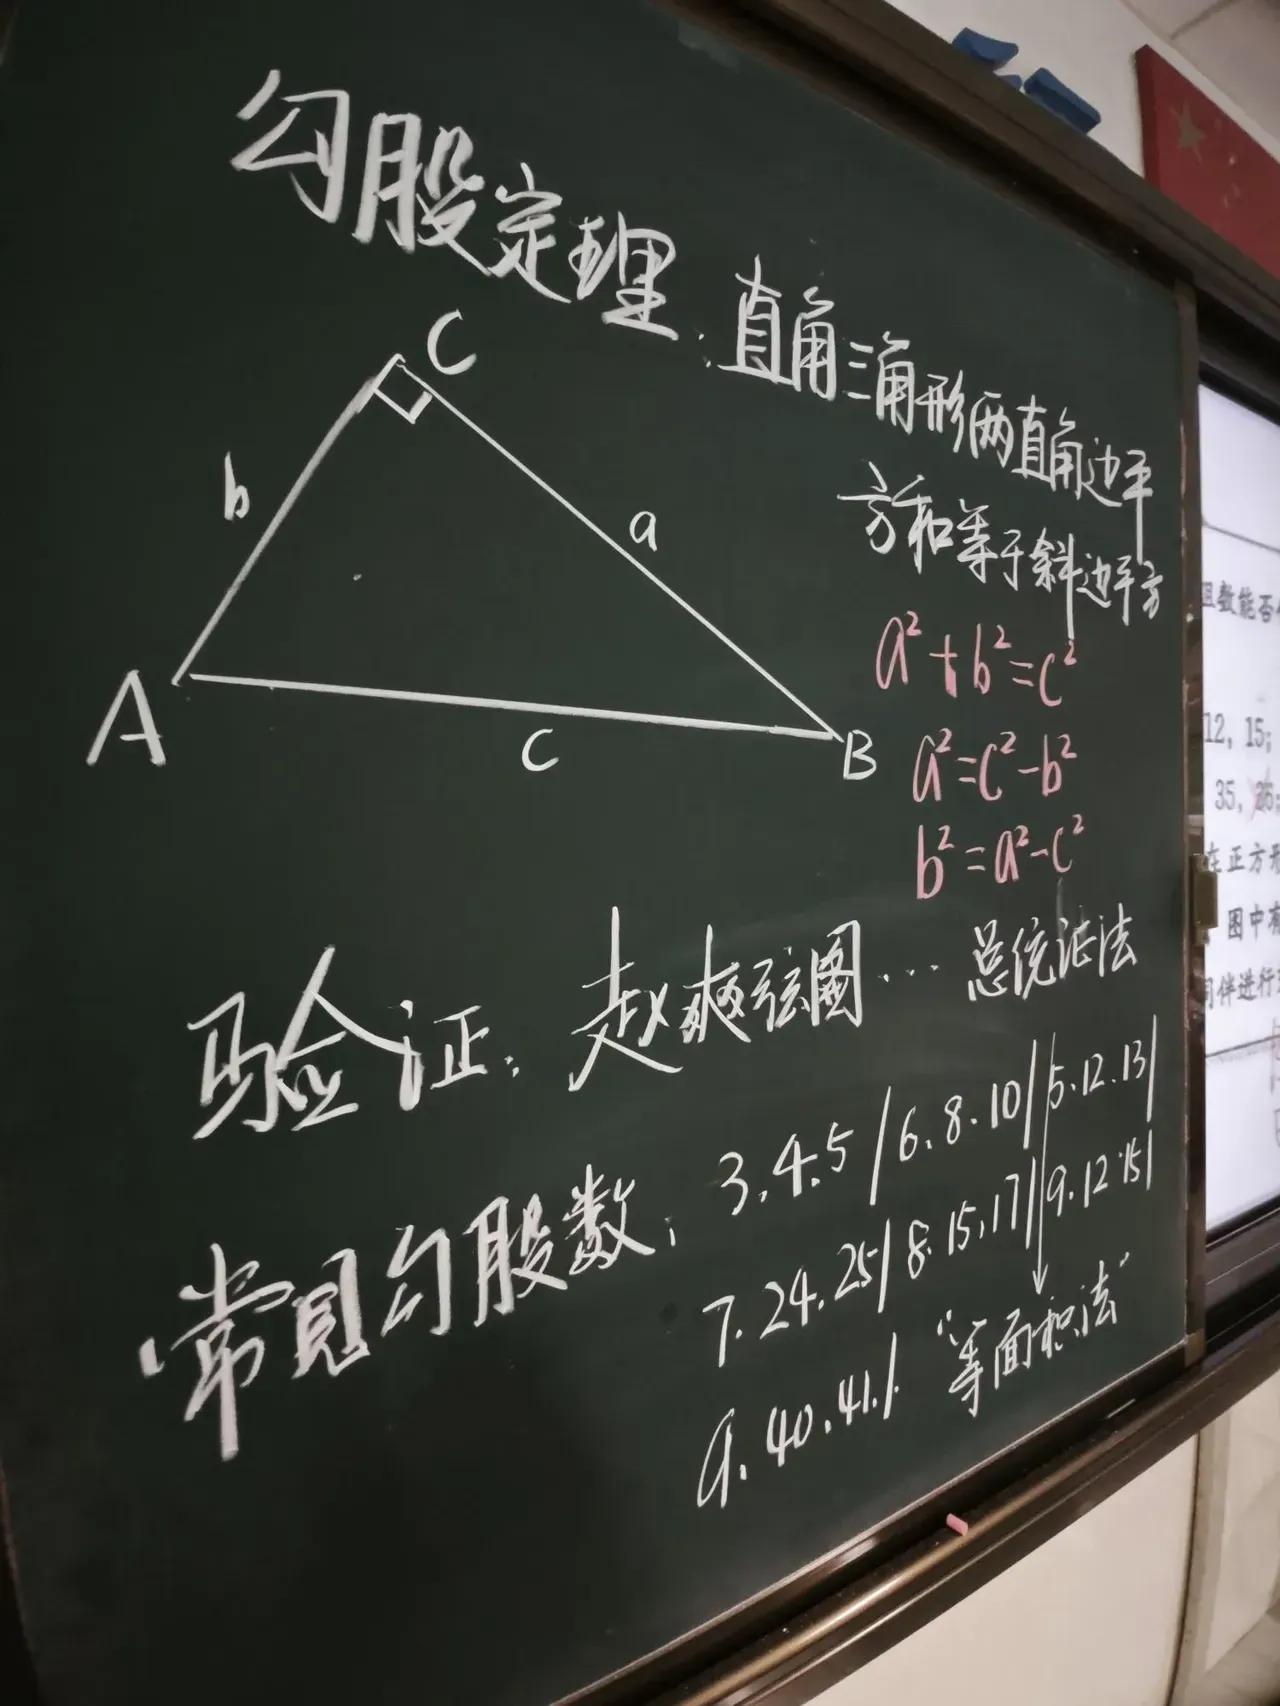 勾股定理:直角三角形两直角边平
方和等于斜边平方
C
b
a
A
c
B
a²+b²=c²
a²=c²-b²
b²=a²-c²
验证:赵爽弦图…总统证法
常见勾股数:3.4.5/6.8.10/5.12.13/
7.24.25/8.15.17/9.12.15/
9.40.41./.
“等面积法”
数能否
12, 15;
35,
在正方形
图中有
同伴进行